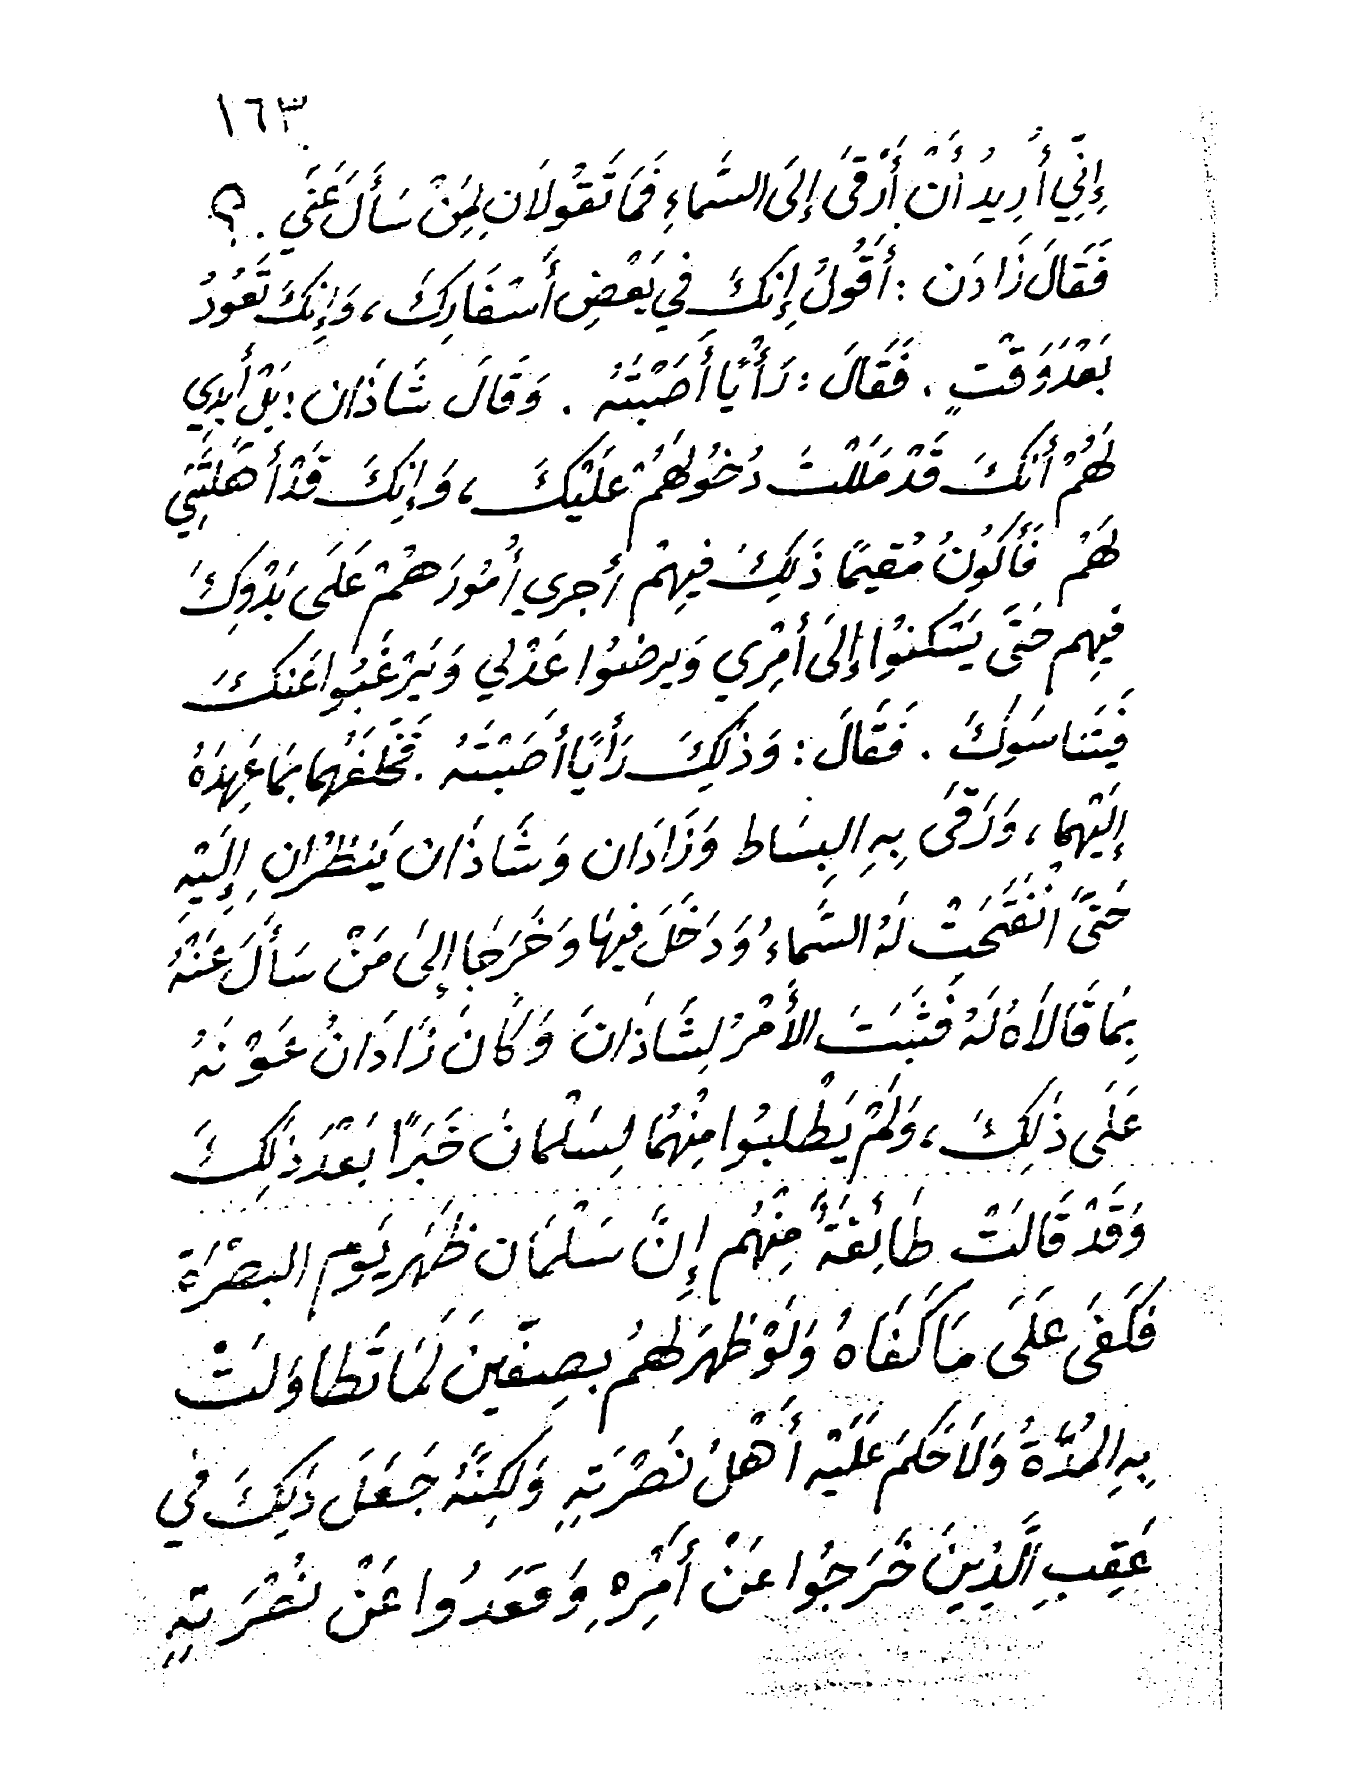 ١٦٣
إِنِّي أُرِيدُ أَنْ أَرْقَى إِلَى السَّمَاءِ فَمَا تَقُولَانِ لِمَنْ سَأَلَ عَنِّي . ؟
فَقَالَ زَادَن : أَقُولُ إِنَّكَ فِي بَعْضِ أَسْفَارِكَ ، وَإِنَّكَ تَعُودُ
بَعْدَ وَقْتٍ . فَقَالَ : رَأْيًا أَصَبْتَهُ . وَقَالَ شَاذَان : بَلْ أُبْدِي
لَهُمْ أَنَّكَ قَدْ مَلَلْتَ دُخُولَهُمْ عَلَيْكَ ، وَإِنَّكَ قَدْ أَهَّلْتَنِي
لَهُمْ فَأَكُونُ مُقِيمًا ذَلِكَ فِيهِمْ أُجرِي أُمُورَهُمْ عَلَى بَدْوِكَ
فِيهِم حَتَّى يَسْكنُوا إِلَى أَمْرِي وَيرضوُا عَدْلِي وَيَرْغَبُوا عَنكَ
فَيَتَناسَوكَ . فَقَالَ : وَذَلِكَ رَأيًا أَصَبْتَهُ . فَخَلَفَهُمَا بِمَا عَهِدَهُ
إِلَيْهِمَا ، وَرَقَى بِهِ البِسَاط وَزَادَان وَشَاذَان يَنظُرَانِ إِلَيْهِ
حَتَّى انْفَتَحَتْ لَهُ السَّمَاءُ وَدَخَلَ فِيهَا وَخَرَجَا إِلَى مَنْ سَأَلَ عَنْهُ
بِمَا قَالاَهُ لَهُ فَثَبَتَ الأَمْرُ لِشَاذَانَ وَكَانَ زَادَانُ عَوْنَهُ
عَلَى ذَلِكَ ، وَلَمْ يَطْلبُوا مِنْهُمَا لِسَلْمانَ خَبَرًا بَعْدَ ذَلِكَ
وَقَدْ قَالَتْ طَائِفَةٌ مِنْهُم إِنَّ سَلْمَان ظَهَر يَوم البَصْرَة
فَكَفَى عَلَى مَا كَفَاهُ وَلَوْ ظَهرَ لَهُمُ بِصِفِّينَ لَمَا تَطَاوَلَتْ
بِهِ المُدَّةُ وَلَا حَكَمَ عَلَيْهِ أَهْلُ نَصْرَتِهِ وَلَكِنَّهُ جَعَلَ ذَلِكَ فِي
عَقِبِ الَّذِينَ خَرَجُوا عَنْ أَمْرِهِ وَقَعَدُوا عَنْ نَصْرَتِهِ